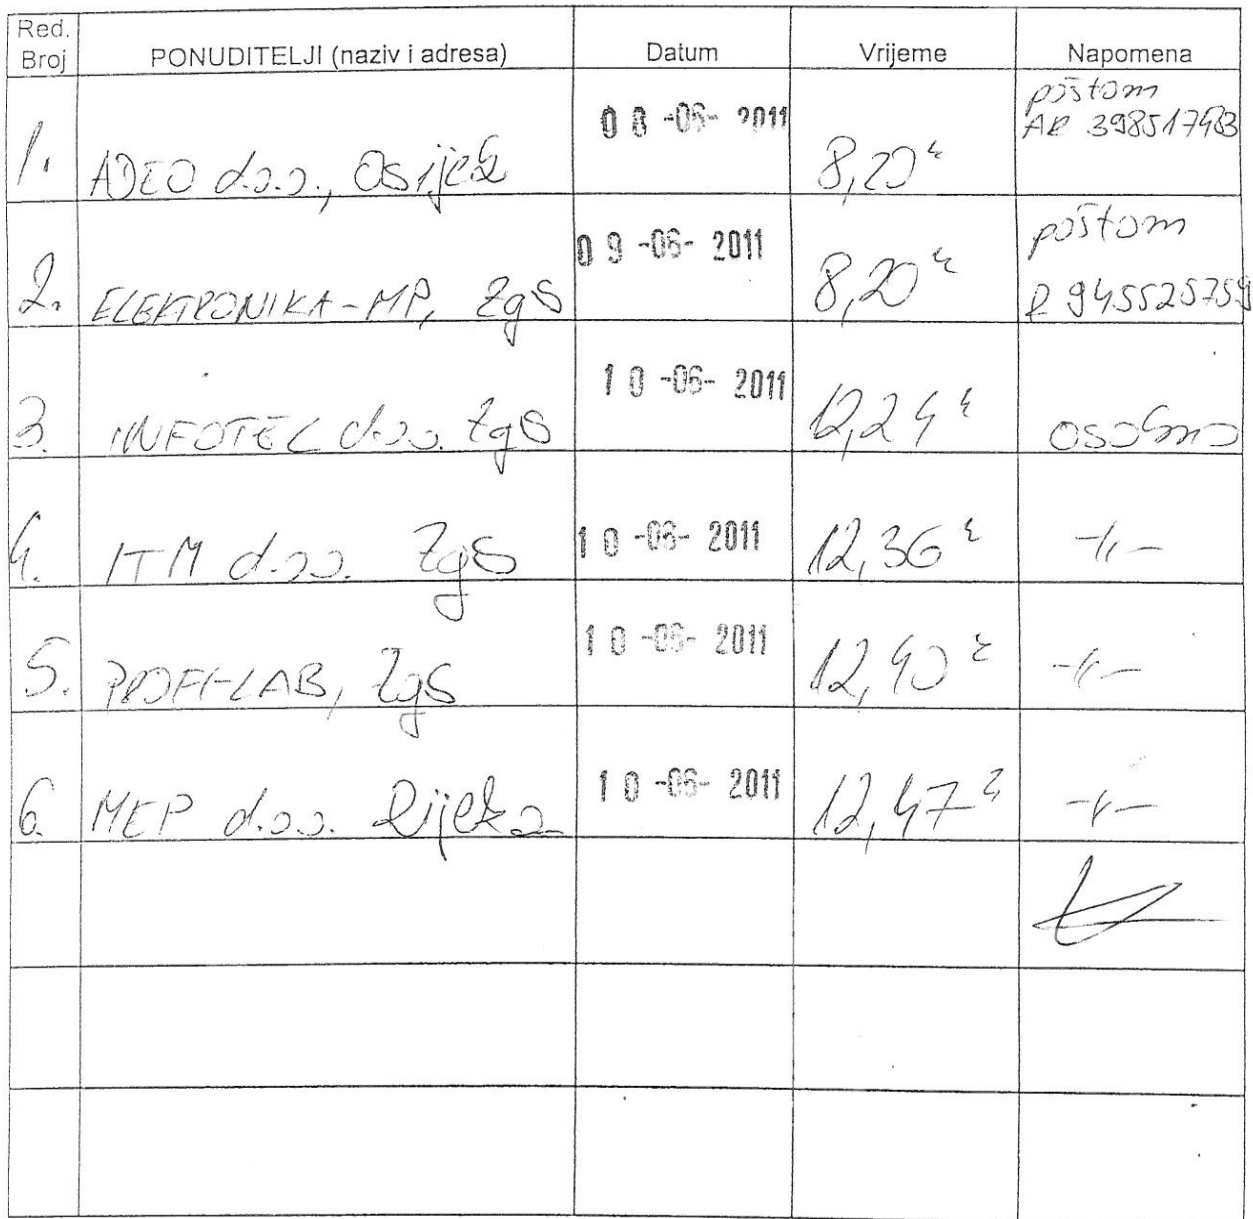 Red.
Broj PONUDITELJI (naziv i adresa) Datum Vrijeme Napomena
1. ADEO d.o.o., Osijek 08-06-2011 8,20 h poštom
AR 398517983
2. ELEKTRONIKA-MP, Zgb 09-06-2011 8,20 h poštom
R 945525759
3. INFOTEL d.o.o. Zgb 10-06-2011 12,24 h osobno
4. ITM d.o.o. Zgb 10-06-2011 12,36 h -〃-
5. PROFI-LAB, Zgb 10-06-2011 12,40 h -〃-
6. MEP d.o.o. Rijeka 10-06-2011 12,47 h -〃-